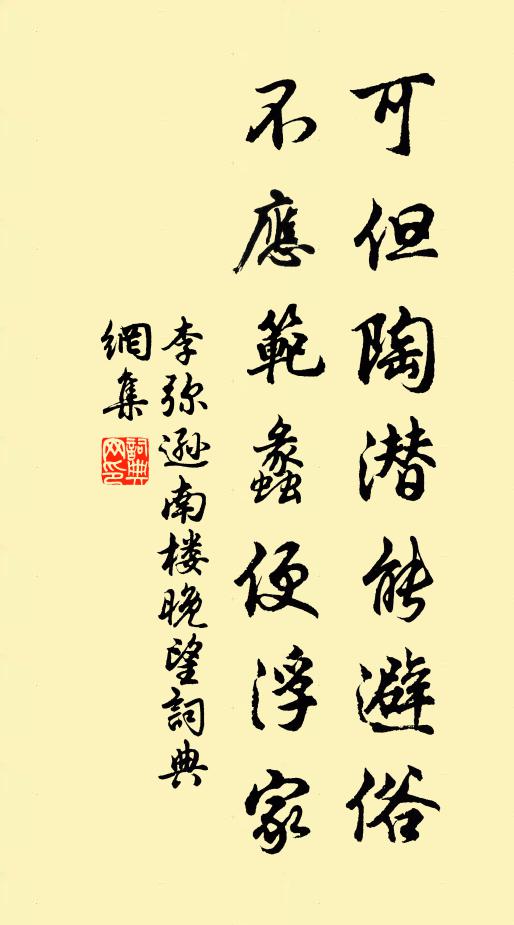 可但陶潜能避俗
不應範蠡便浮家
李弥遜南楼晚望詞典
網集
詞典
网印